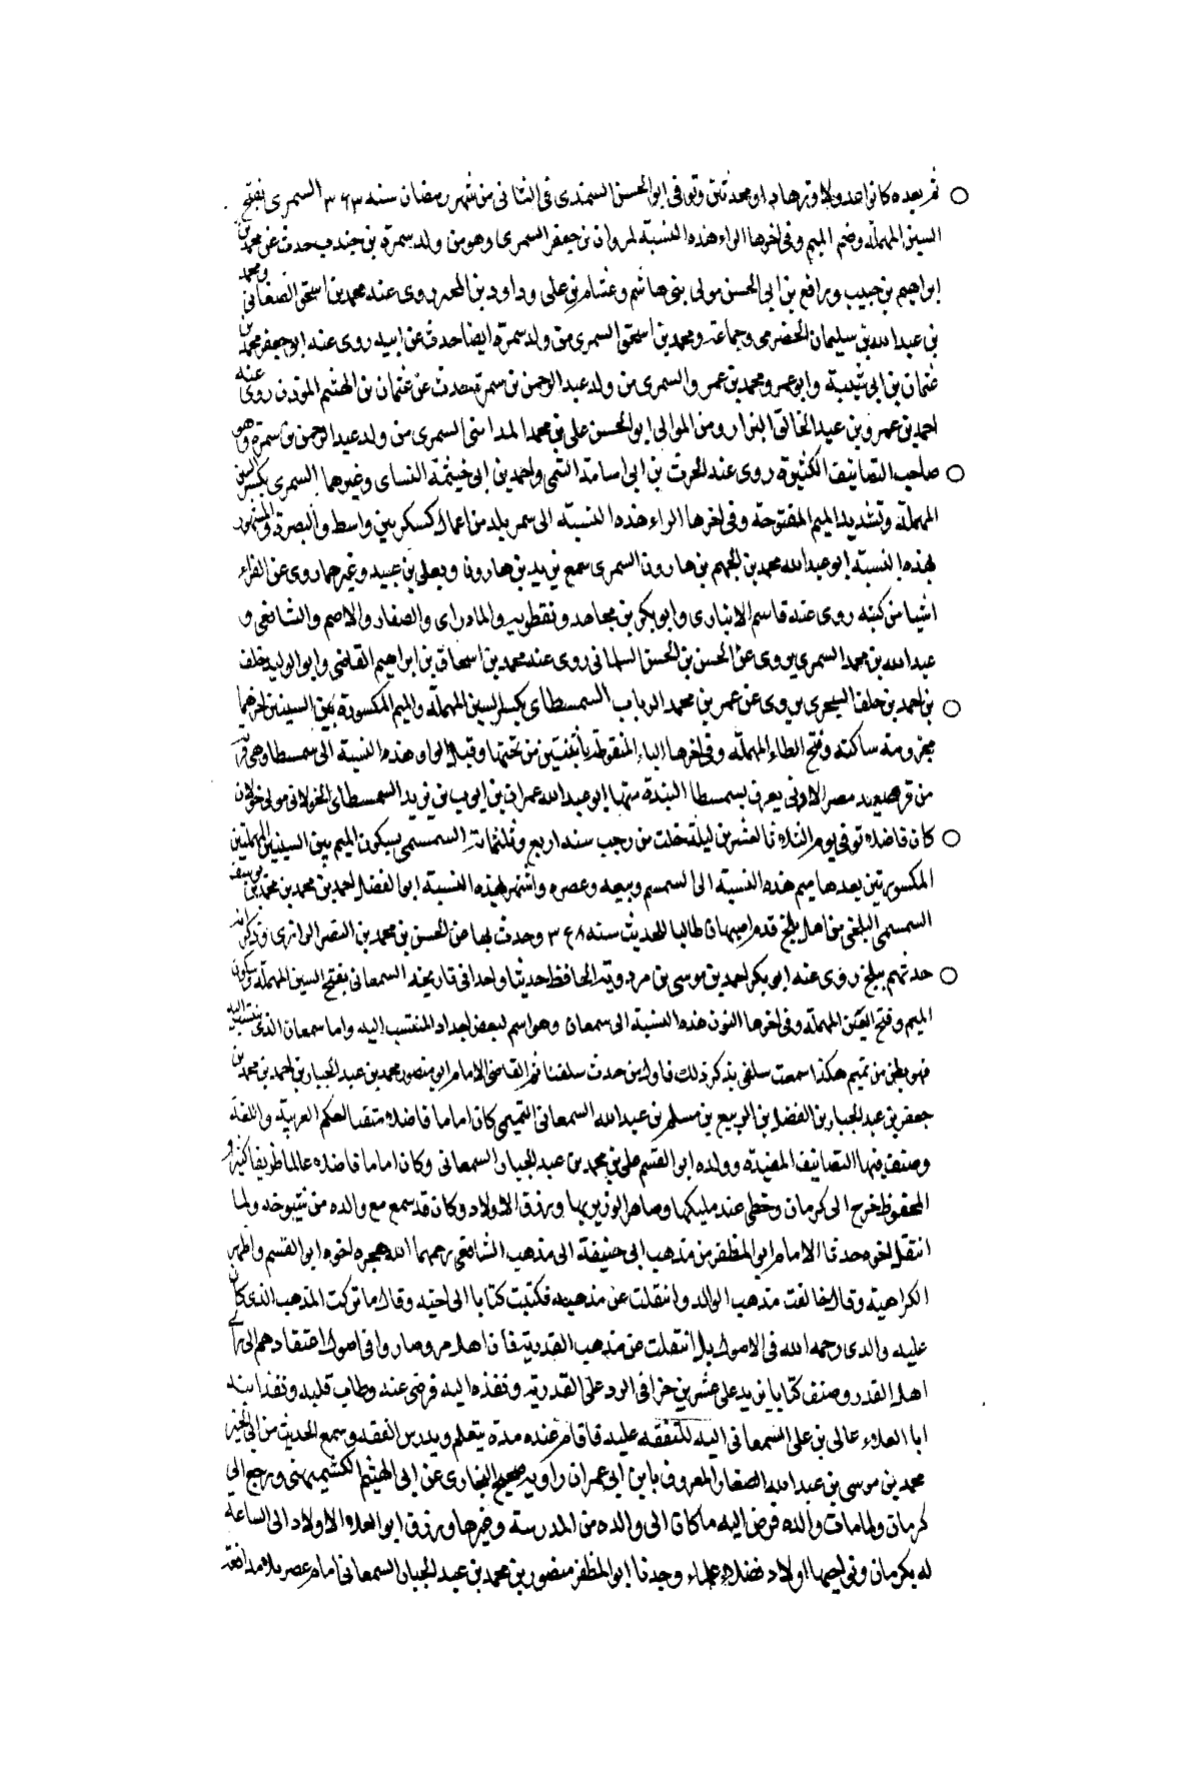 ثم بعده كانوا عدولا وزهادا ومحدثين وتوفى ابو الحسن السمندى فى الثانى من شهر رمضان سنه ٣٦٣ السمرى بفتح
السين المهملة وضم الميم وفى اخرها الراء هذه النسبة لمروان بن جعفر السمرى وهو من ولد سمرة بن جندب حدث عن محمد بن
ابراهيم بن حبيب ورافع بن ابى الحسن مولى بنى هاشم وعثام بن على وداود بن روى عنه محمد بن اسحق الصغانى ومحمد
بن عبد الله بن سليمان الحضرمى وجماعة ومحمد بن اسحق السمرى من ولد سمرة ايضا حدث عن ابيه روى عنه ابو جعفر محمد بن
عثمان بن ابى شيبة وابو عمرو محمد بن عمرو السمرى من ولد عبد الرحمن بن سمرة حدث عن عثمان بن الهيثم الموذن روى عنه
احمد بن عمرو بن عبد الخالق البزار ومن الموالى ابو الحسن على بن محمد المداينى السمرى من ولد عبد الرحمن بن سمرة وهو
صاحب التصانيف الكثيرة روى عنه الحرث بن ابى اسامة التمى واحمد بن ابى خيثمة النساى وغيرهما السمرى بكسر السين
المهملة وتشديد الميم المفتوحة وفى اخرها الراء هذه النسبة الى سمر بلد من اعمال كسكر بين واسط والبصرة والمشهور
بهذه النسبة ابو عبد الله محمد بن الجهم بن هارون السمرى سمع يزيد بن هارون ويعلى بن عبيد وغيرهما روى عن الفراء
اشيا من كتبه روى عنه قاسم الانبارى وابو بكر بن مجاهد ونفطويه والمادراى والصفار والاصم والشافعى و
عبد الله بن محمد السمرى يروى عن الحسن بن الحسن السلمانى روى عنه محمد بن اسحاق بن ابراهيم القاضى وابو الوليد خلف
بن احمد بن خلف السجزى يروى عن عمر بن محمد الوباب السمسطاى بكسر السين المهملة والميم المكسورة بين السينين اخرهما
مجزومة ساكنه وفتح الطاء المهملة وفى اخرها الياء المنقوطة باثنتين من تحتها وقبلها الواو هذه النسبة الى سمسطا وهى قرية
من قرى صعيد مصر الادنى يعرف بسمسطا منها ابو عبد الله عمران بن ايوب بن يزيد السمسطاى الخولانى مولى خولان
كان فاضلا توفى يوم الثلاثا لعشرين ليلة خلت من رجب سنه اربع وثلثماية السمسمى بسكون الميم بين السينين المهملتين
المكسورتين بعدها ميم هذه النسبة الى السمسم وبيعه وعصره واشتهر بهذه النسبة ابو الفضل احمد بن محمد بن محمد بن يوسف
السمسمى البلخى من اهل بلخ قدم اصبهان طالبا للحديث سنه ٣٤٨ وحدث بها عن الحسن بن محمد بن النصر الرازى وذكر انه
حدثهم ببلخ روى عنه ابو بكر احمد بن موسى بن مردويه الحافظ حديثا واحدا فى تاريخه السمعانى بفتح السين المهملة وسكون
الميم وفتح العين المهملة وفى اخرها النون هذه النسبة الى سمعان وهو اسم لبعض اجداد المنتسب اليه واما سمعان الذى ينتسب اليه
فهو بطن من تميم هكذا سمعت سلفى يذكر ذلك فاول من حدث سلفنا ثم القاضى الامام ابو منصور محمد بن عبد الجبار بن احمد بن محمد بن
جعفر بن عبد الجبار بن الفضل بن الربيع بن مسلم بن عبد الله السمعانى التميمى كان اماما فاضلا متقنا احكم العربية واللغة
وصنف فيها التصانيف المفيدة وولده ابو القسم على بن محمد بن عبد الجبار السمعانى وكان اماما فاضلا عالما ظريفا كثير
المحفوظ خرج الى كرمان وحظى عند مليكها وصاهر الوزير بها ورزق الاولاد وكان قد سمع مع والده من شيوخه ولما
انتقل اخوه جدنا الامام ابو المظفر من مذهب ابى حنيفة الى مذهب الشافعى رحمهما الله هجره اخوه ابو القسم واظهر
الكراهية وقال خالفت مذهب الوالد وانتقلت عن مذهبه فكتبت كتابا الى اخيه وقال ما تركت المذهب الذى كان
عليه والدى رحمه الله فى الاصول بل انتقلت عن مذهب القدرية فان اهل مرو صاروا فى اصول اعتقادهم الى راى
اهل القدر وصنف كتابا يزيد على عشرين جزا فى الرد على القدرية ونفذه اليه فرضى عنه وطاب قلبه ونفذ ابنه
ابا العلاء عالى بن على السمعانى اليه للتفقه عليه فاقام عنده مدة يتعلم ويدرس الفقه وسمع الحديث من ابى الخير
محمد بن موسى بن عبد الله الصفار المعروف بابن ابى عمران راوية صحيح البخارى عن ابى الهيثم الكشميهنى ورجع الى
كرمان ولما مات والده فوض اليه ما كان الى والده من المدرسة وغيرها ورزق ابو العلا الاولاد الى الساعه
له بكرمان ونواحيها اولاد فضلاء علماء وجدنا ابو المظفر منصور بن محمد بن عبد الجبار السمعانى امام عصره بلا مدافعة